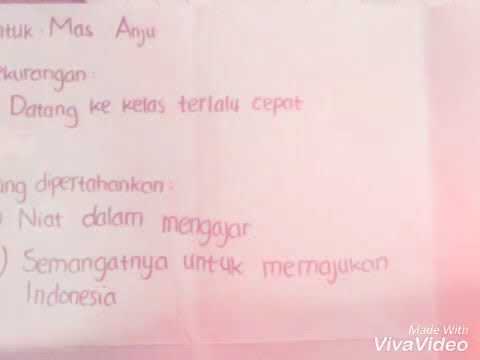 ntuk · Mas Anju
ekurangan :
Datang ke kelas terlalu cepat
ang dipertahankan :
) Niat dalam mengajar
) Semangatnya untuk memajukan
Indonesia
Made With
VivaVideo